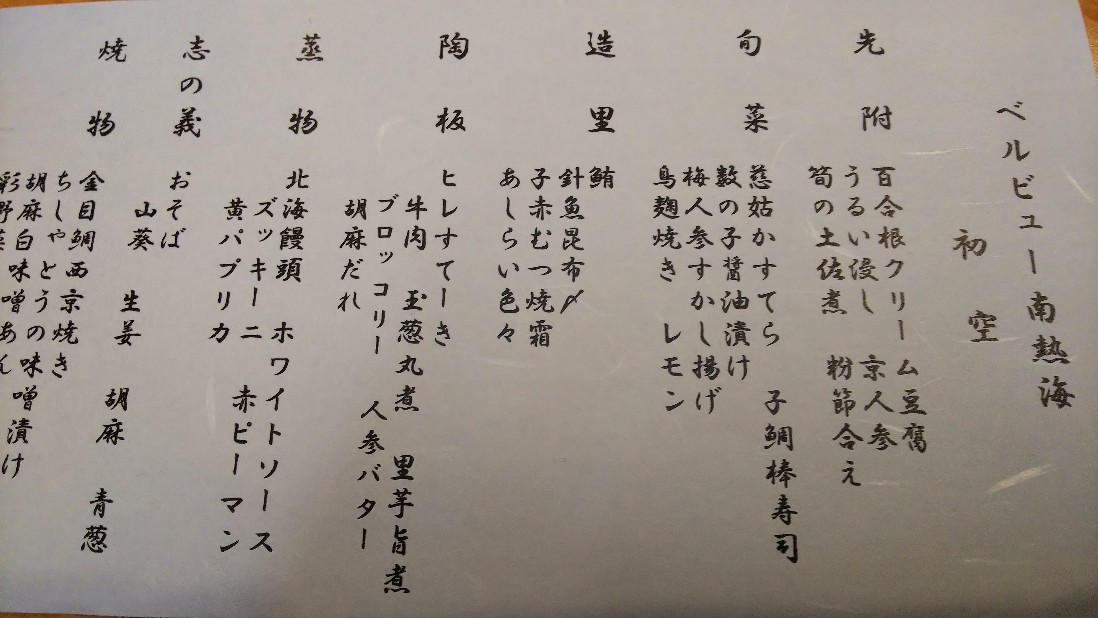 ベルビュー南熱海
初空
先附
百合根クリーム豆腐
うるい浸し 京人参
筍の土佐煮 粉節合え
旬菜
慈姑かすてら 子鯛棒寿司
数の子醤油漬け
梅人参すかし揚げ
鳥麹焼き レモン
造里
鮪
針魚昆布〆
子赤むつ焼霜
あしらい色々
陶板
ヒレすてーき
牛肉 玉葱丸煮 里芋旨煮
ブロッコリー 人参バター
胡麻だれ
蒸物
北海饅頭 ホワイトソース
ズッキーニ 赤ピーマン
黄パプリカ
志の義
おそば
山葵 生姜 胡麻 青葱
焼物
金目鯛西京焼き
ちしゃとうの味噌漬け
胡麻白味噌あん
彩野菜